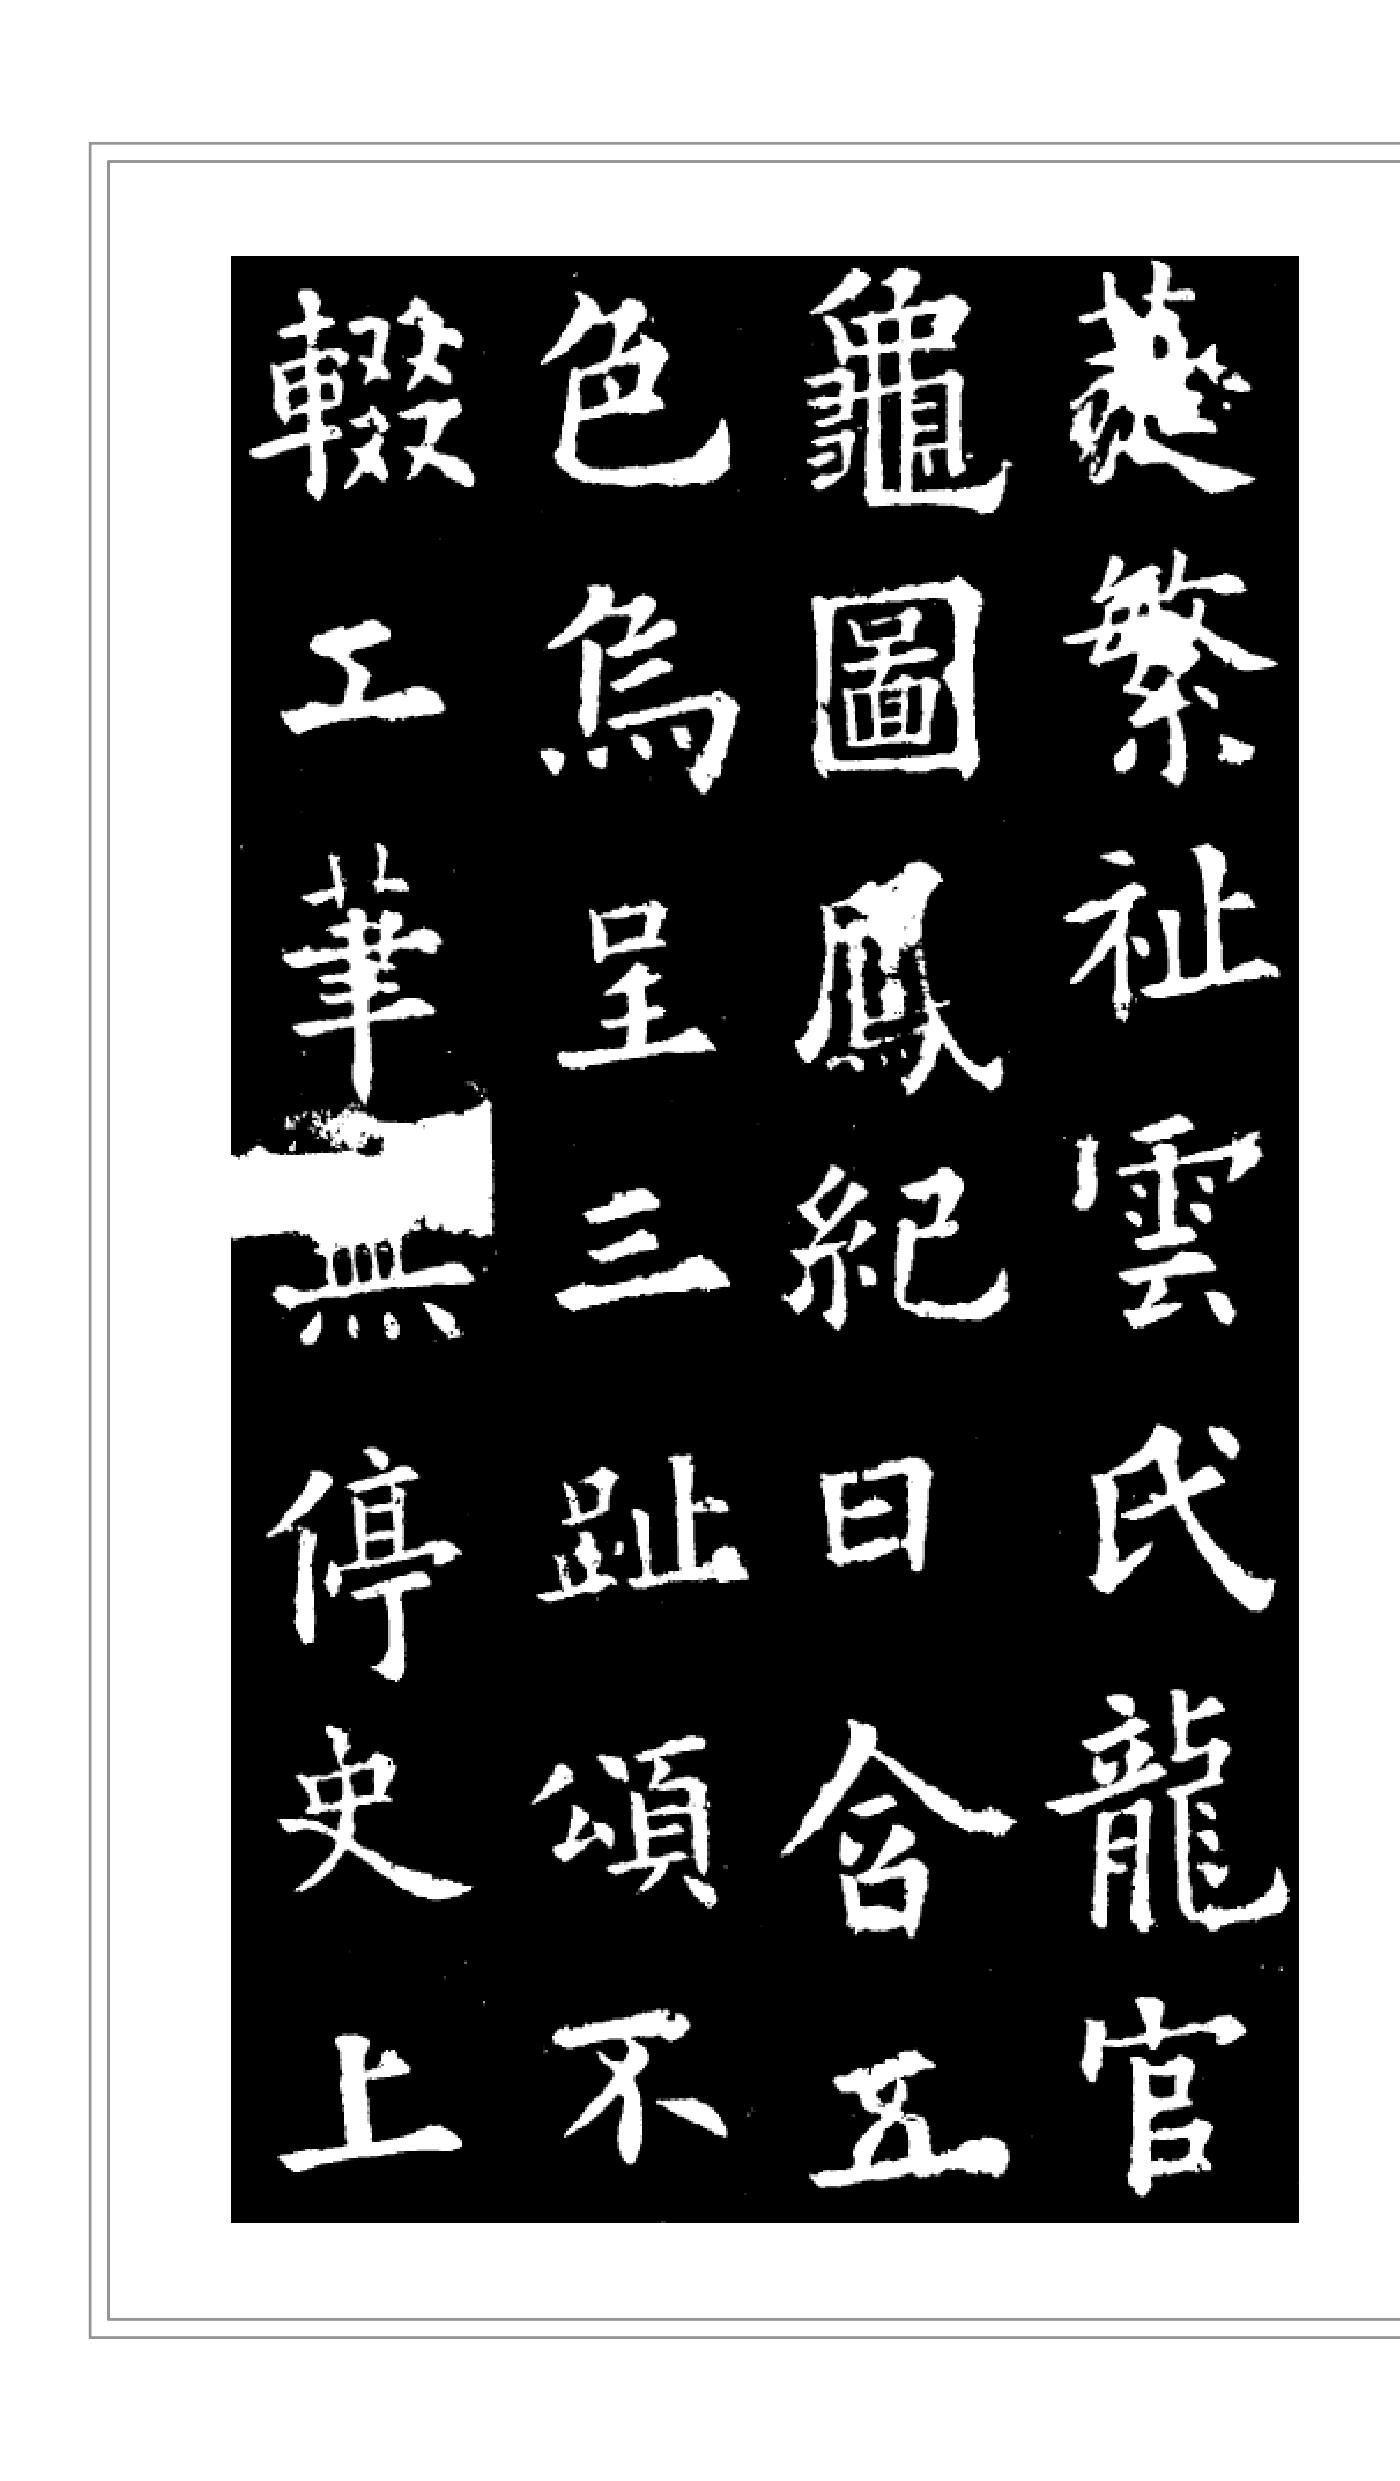 蕤繁祉雲氏龍官
龜圖鳳紀日含五
色烏呈三趾頌不
輟工筆無停史上